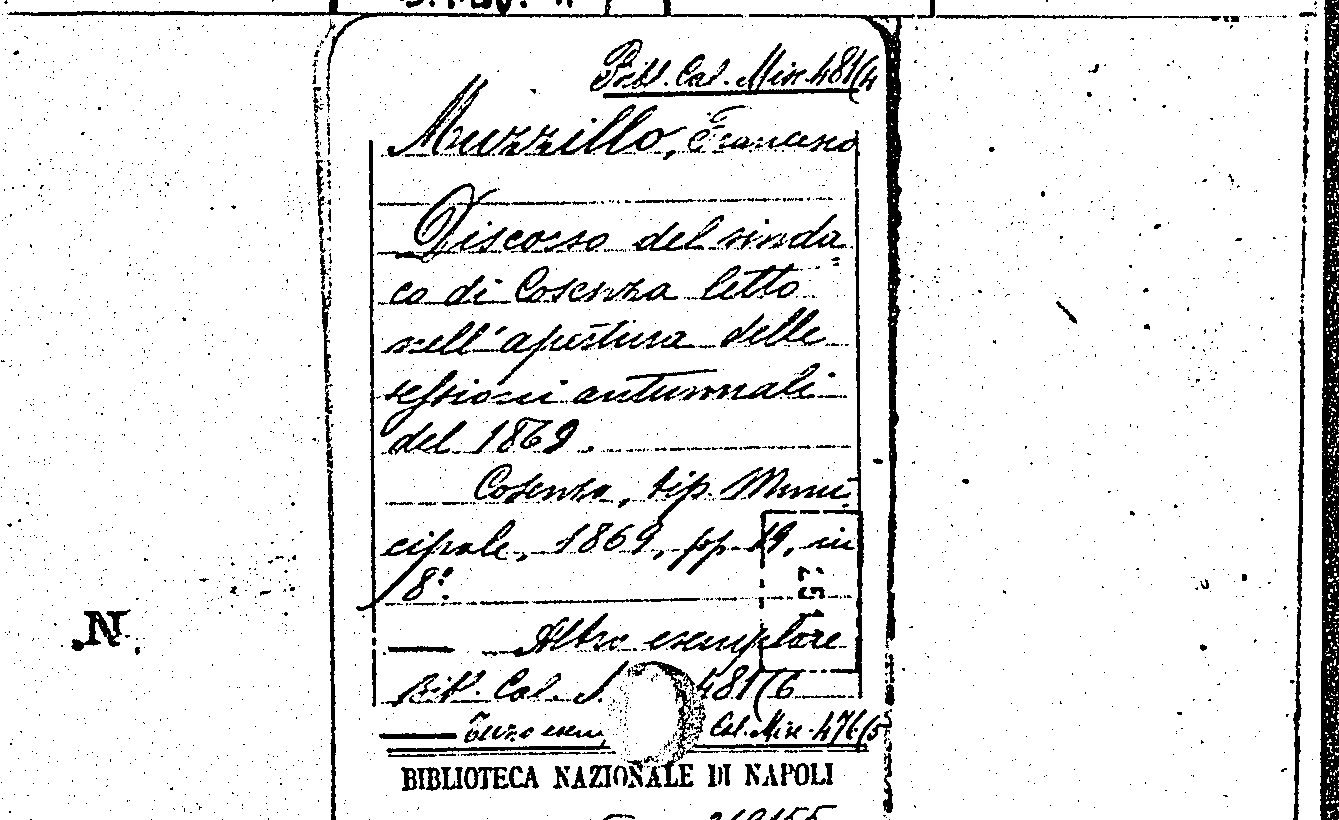 Bibl. Cal. Misc. 481(4
Muzzillo, Francesco
Discorso del sinda=
co di Cosenza letto
nell'apertura delle
sessioni autunnali
del 1869.
Cosenza, tip. Muni=
cipale, 1869, pp. 19, in
8º.
— Altro esemplare
Bibl. Cal. 481(6
— Terzo esem Cal. Misc. 476(5
BIBLIOTECA NAZIONALE DI NAPOLI
N.